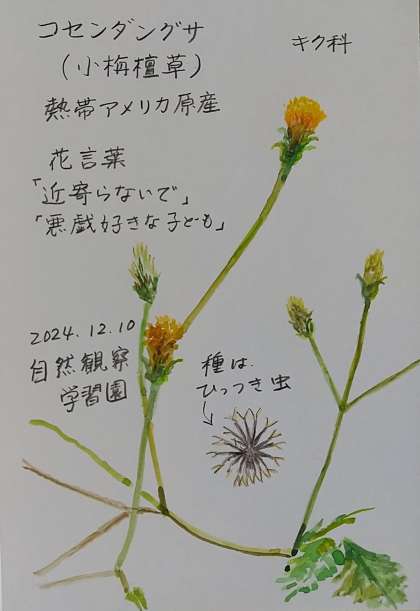 コセンダングサ
キク科
（小栴檀草）
熱帯アメリカ原産
花言葉
「近寄らないで」
「悪戯好きな子ども」
2024.12.10
自然観察
学習園
種は
ひっつき虫